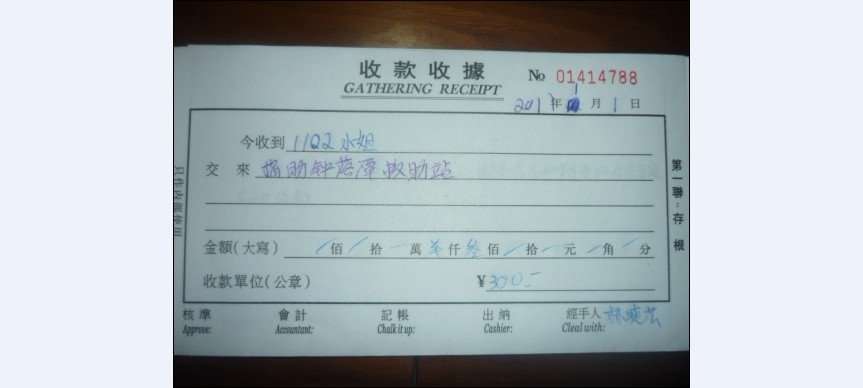 收款收據
GATHERING RECEIPT
No 01414788
2011年1月1日
今收到 1122小姐
交來 捐助钟落潭救助站
金額(大寫) 佰 拾 萬 仟 叁佰 拾 元 角 分
收款單位(公章) ¥300-
核準 會計 記帳 出納 經手人
Approve: Accountant: Chalk it up: Cashier: Cleal with:
第一聯:存根